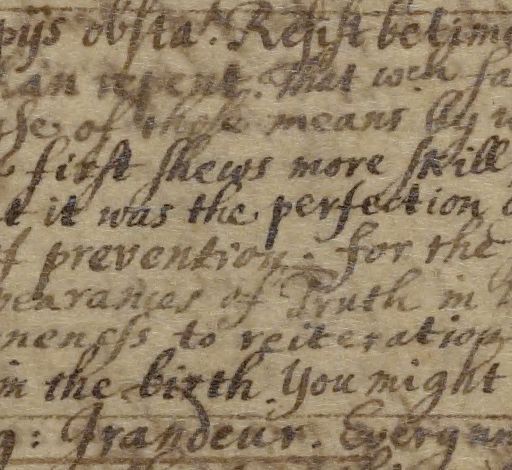 pijs obsta. Resist betime
han repent. That wch fa
use of those means by w
first shews more skill
t it was the perfection o
of prevention. for the
pearances of Truth in
neness to reiteration
in the birth. You might
g: Grandeur. Every un